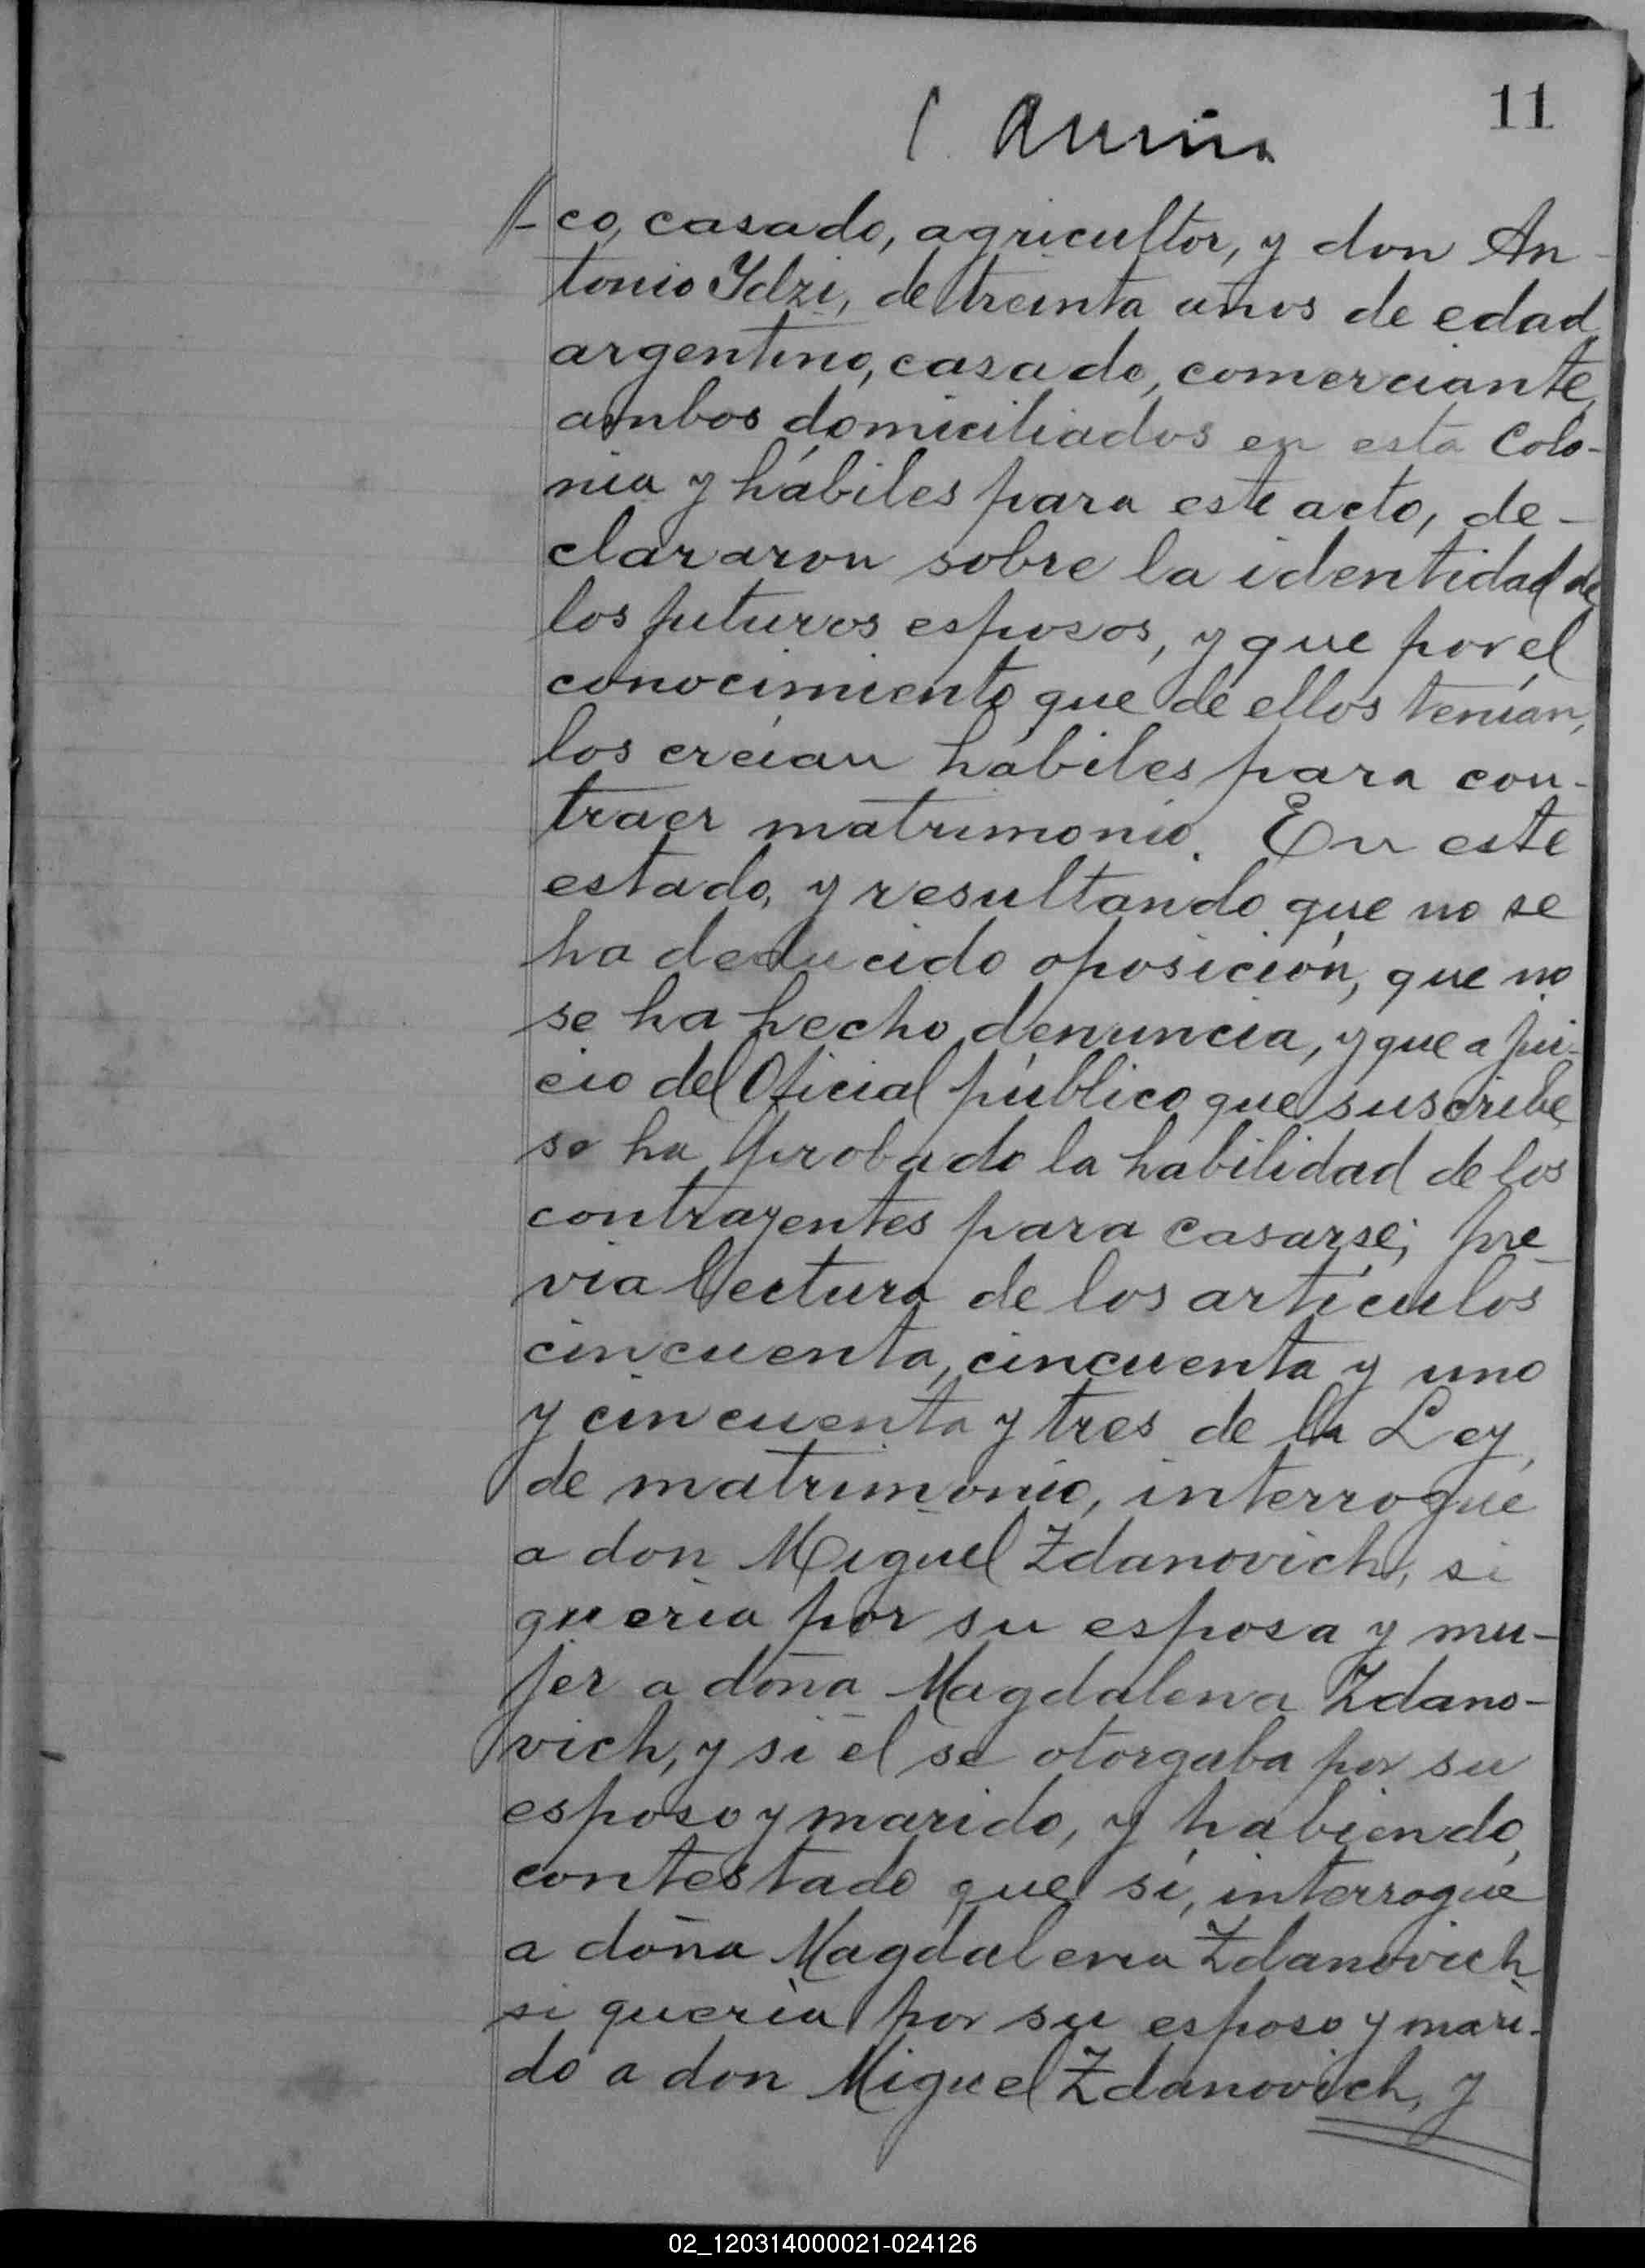 11
co, casado, agricultor, y don An-
tonio Ydzi, de treinta años de edad,
argentino, casado, comerciante,
ambos domiciliados en esta Colo-
nia y hábiles para este acto, de-
clararon sobre la identidad de
los futuros esposos, y que por el
conocimiento que de ellos tenían,
los creían hábiles para con-
traer matrimonio. En este
estado, y resultando que no se
ha deducido oposición, que no
se ha hecho denuncia, y que a jui-
cio del Oficial público que suscribe
se ha probado la habilidad de los
contrayentes para casarse; pre-
via lectura de los artículos
cincuenta, cincuenta y uno
y cincuenta y tres de la Ley
de matrimonio, interrogué
a don Miguel Zdanovich, si
quería por su esposa y mu-
jer a doña Magdalena Zdano-
vich, y si él se otorgaba por su
esposo y marido, y habiendo
contestado que sí, interrogué
a doña Magdalena Zdanovich
si quería por su esposo y mari-
do a don Miguel Zdanovich, y
02_120314000021-024126